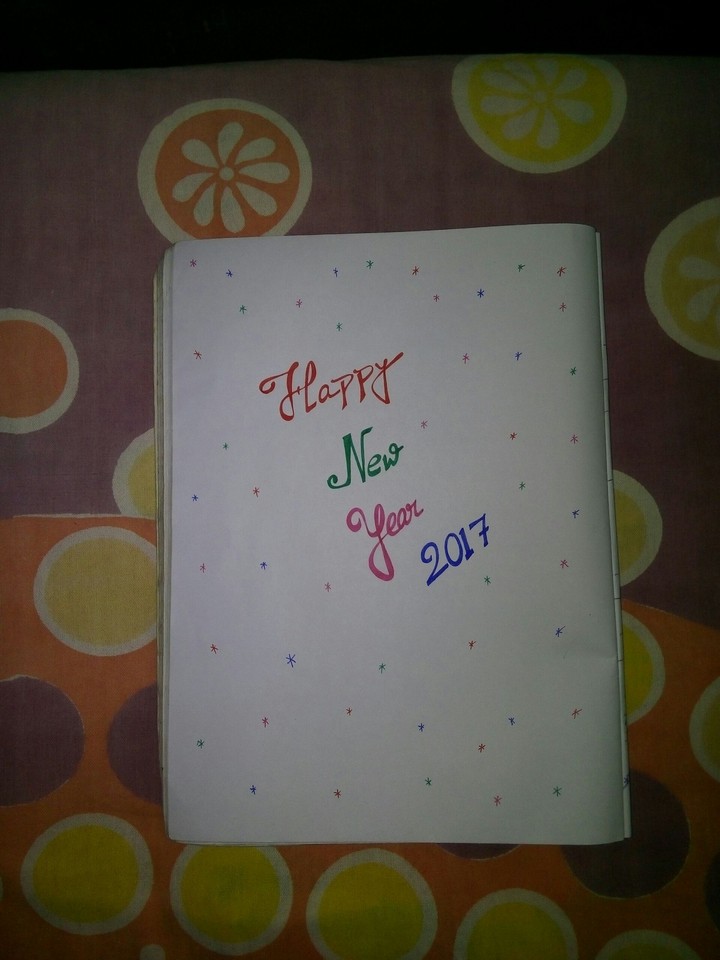 Happy
New
Year
2017